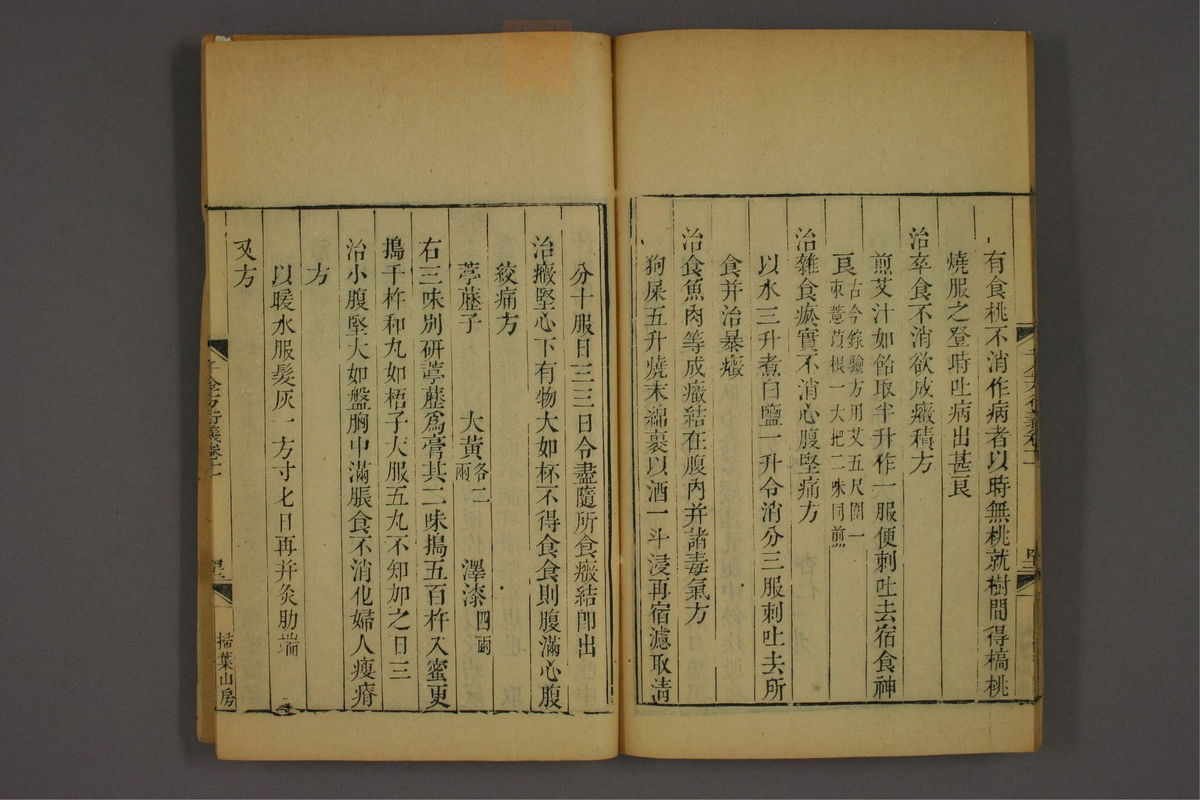 有食桃不消作病者以時無桃就樹間得槁桃
燒服之登時吐病出甚良
治卒食不消欲成癥積方
煎艾汁如飴取半升作一服便刺吐去宿食神
良古今錄驗方用艾五尺圍一
束薏苡根一大把二味同煎
治雜食瘀實不消心腹堅痛方
以水三升煮白鹽一升令消分三服刺吐去所
食并治暴癥
治食魚肉等成癥結在腹內并諸毒氣方
狗屎五升燒末綿裹以酒一斗浸再宿濾取清
分十服日三三日令盡隨所食癥結卽出
治癥堅心下有物大如杯不得食食則腹滿心腹
絞痛方
葶藶子　大黃各二兩　澤漆四兩
右三味別研葶藶爲膏其二味搗五百杵入蜜更
搗千杵和丸如梧子大服五丸不知加之日三
治小腹堅大如盤胸中滿脹食不消化婦人瘦瘠
方
以暖水服髮灰一方寸匕日再并灸肋端
又方
千金方衍義卷十一
掃葉山房